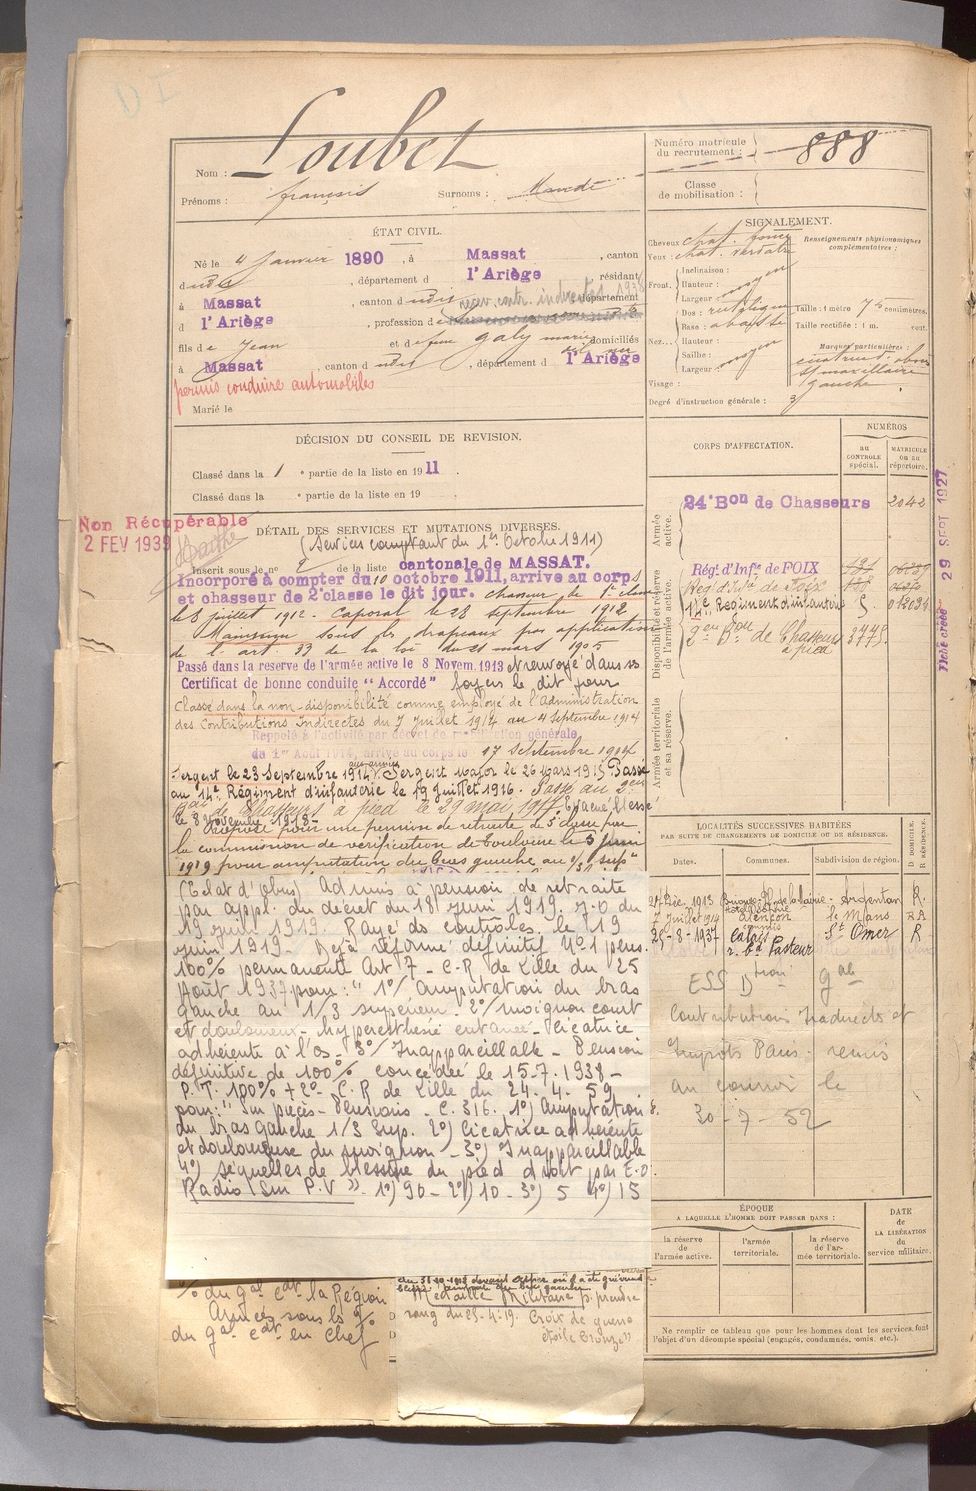 Loubet
Nom :
Prénoms : François Surnoms : Mandé
Numéro matricule du recrutement : 888
Classe de mobilisation :
ÉTAT CIVIL.
Né le 4 Janvier 1890, à Massat, canton
dudit, département d l'Ariège, résidant
à Massat, canton dudit, département
rev. contr. indirectes 1938
d l'Ariège, profession d
fils de Jean et de feue Galy Marie domiciliés
à Massat, canton dudit, département d l'Ariège
permis conduire automobiles
Marié le
SIGNALEMENT.
Cheveux chat. foncé
Yeux : chat. verdâtre
Renseignements physionomiques complémentaires :
Front. Inclinaison :
Hauteur : moyen
Largeur :
Nez. Dos : rectiligne
Base : abaissée
Hauteur :
Saillie : moyen
Largeur :
Visage :
Taille : 1 mètre 75 centimètres.
Taille rectifiée : 1 m. cent.
Marques particulières :
maxillaire
gauche
Degré d'instruction générale : 3
DÉCISION DU CONSEIL DE REVISION.
Classé dans la 1 e partie de la liste en 1911.
Classé dans la e partie de la liste en 19
Non Récupérable
2 FEV 1939
DÉTAIL DES SERVICES ET MUTATIONS DIVERSES.
(Services comptant du 1er Octobre 1911)
Inscrit sous le no 2 de la liste cantonale de MASSAT.
Incorporé à compter du 10 octobre 1911, arrive au corps
et chasseur de 2e classe le dit jour. chasseur de 1e classe
le 8 juillet 1912. Caporal le 28 septembre 1912
Maintenu sous les drapeaux par application
de l'art. 33 de la loi du 21 mars 1905
Passé dans la reserve de l'armée active le 8 Novem. 1913 et renvoyé dans ses
Certificat de bonne conduite "Accordé" foyers le dit jour
Classé dans la non-disponibilité comme employé de l'Administration
des Contributions Indirectes du 7 Juillet 1914 au 4 Septembre 1914
Rappelé à l'activité par décret de mobilisation générale
du 1er Août 1914, arrivé au corps le 17 Septembre 1914
Sergent le 23 Septembre 1914. Sergent Major le 26 Mars 1915 Passé
au 14e Régiment d'infanterie le 19 juillet 1916. Passé au 2em
Bon de Chasseurs à pied le 29 mai 1917. Evacué blessé
le 8 Novembre 1918-
Proposé pour une pension de retraite de 5e classe par
la commission de vérification de Toulouse le 5 juin
1919 pour amputation du bras gauche au 1/3 supr
(Eclat d'Obus) Admis à pension de retraite
par appl. du décret du 18 juin 1919. J.O du
19 juin 1919. Rayé des contrôles le 19
juin 1919. Déjà réformé définitif No 1 pens.
100% permanente Art 7 - C.R de Lille du 25
Août 1937 pour : "1o/ Amputation du bras
gauche au 1/3 supérieur. 2o/ moignon court
et douloureux - hyperesthésie cutanée - Cicatrice
adhérente à l'os - 3o/ Inappareillable - Pension
définitive de 100% concédée le 15-7-1938-
P.T. 100% + 2o - C.R de Lille du 24-4-59
pour: "Sur pièces - Pensions - C.316. 1o) Amputation
du bras gauche 1/3 Sup. 2o) Cicatrice adhérente
et douloureuse du moignon - 3o) Inappareillable
4o) Séquelles de blessure du pied droit par E.O.
Radio (Sur P.V ") 1o) 90 - 2o) 10 - 3o) 5 4o) 15
% du gal cdt la Région
Armées sous le %
du gal cdt en Chef
du 31-10-1918 devant
Médaille Militaire p. prendre
rang du 25-4-19. Croix de guerre
étoile bronze"
CORPS D'AFFECTATION.
NUMÉROS
au CONTROLE spécial.
MATRICULE ou au répertoire.
Armée active.
24e Bon de Chasseurs 2042
Disponibilité et réserve de l'armée active.
Régt d'Infie de FOIX
Régt d'Infie de Foix
14e Régiment d'infanterie
2em Bon de Chasseurs à pied 3775
Armée territoriale et sa réserve.
29 SEPT 1927
Fiche créée
LOCALITÉS SUCCESSIVES HABITÉES
PAR SUITE DE CHANGEMENTS DE DOMICILE OU DE RÉSIDENCE.
Dates. Communes. Subdivision de région. D DOMICILE. R RÉSIDENCE.
1913 Argentan R.
7 Juillet 1914 Alençon le Mans RA
25-8-1937 Calais St Omer R
r. bd Pasteur
ESS Dtion gale
Contributions Indirects et
Impôts Paris. remis
au courrier le
30-7-52
ÉPOQUE
A LAQUELLE L'HOMME DOIT PASSER DANS :
la réserve de l'armée active.
l'armée territoriale.
la réserve de l'armée territoriale.
DATE de LA LIBÉRATION du service militaire.
Ne remplir ce tableau que pour les hommes dont les services font
l'objet d'un décompte spécial (engagés, condamnés, omis, etc.).